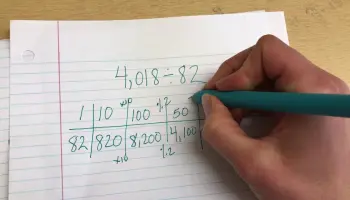 4,018 ÷ 82
x10 ÷2
1 10 100 50
82 820 8,200 4,100
x10 ÷2